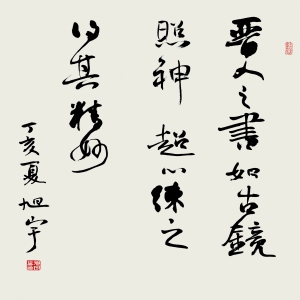 晋人之書如古鏡
照神 超以練之
得其精妙
丁亥夏旭宇